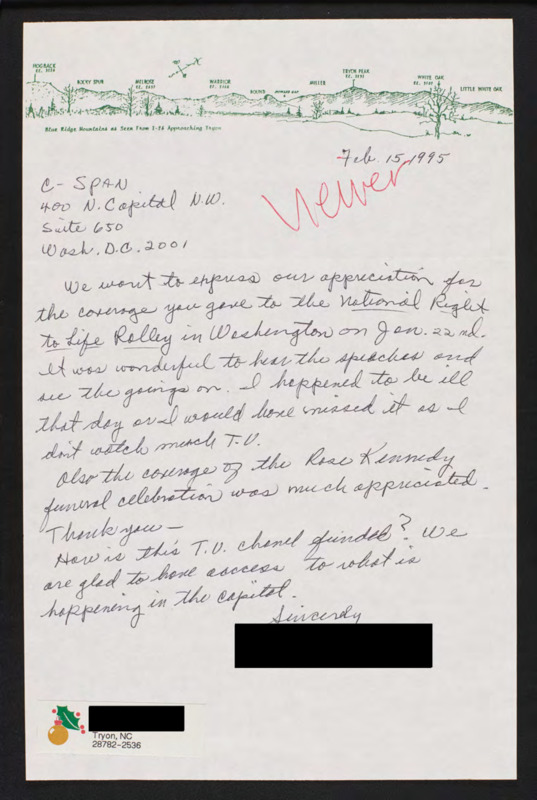 HOGBACK
EL. 3226
ROCKY SPUR
MELROSE
WARRIOR
ROUND
HOWARD GAP
MILLER
TRYON PEAK
WHITE OAK
LITTLE WHITE OAK
Blue Ridge Mountains as Seen From I-26 Approaching Tryon
Feb. 15, 1995
Viewer
C-SPAN
400 N. Capital N.W.
Suite 650
Wash. D.C. 2001
We want to express our appreciation for
the coverage you gave to the National Right
to Life Ralley in Washington on Jan. 22nd.
It was wonderful to hear the speaches and
see the goings on. I happened to be ill
that day or I would have missed it as I
don't watch much T.V.
Also the coverage of the Rose Kennedy
funeral celebration was much appreciated.
Thank you—
How is this T.V. chanel funded? We
are glad to have access to what is
happening in the capital.
Sincerely
Tryon, NC
28782-2536